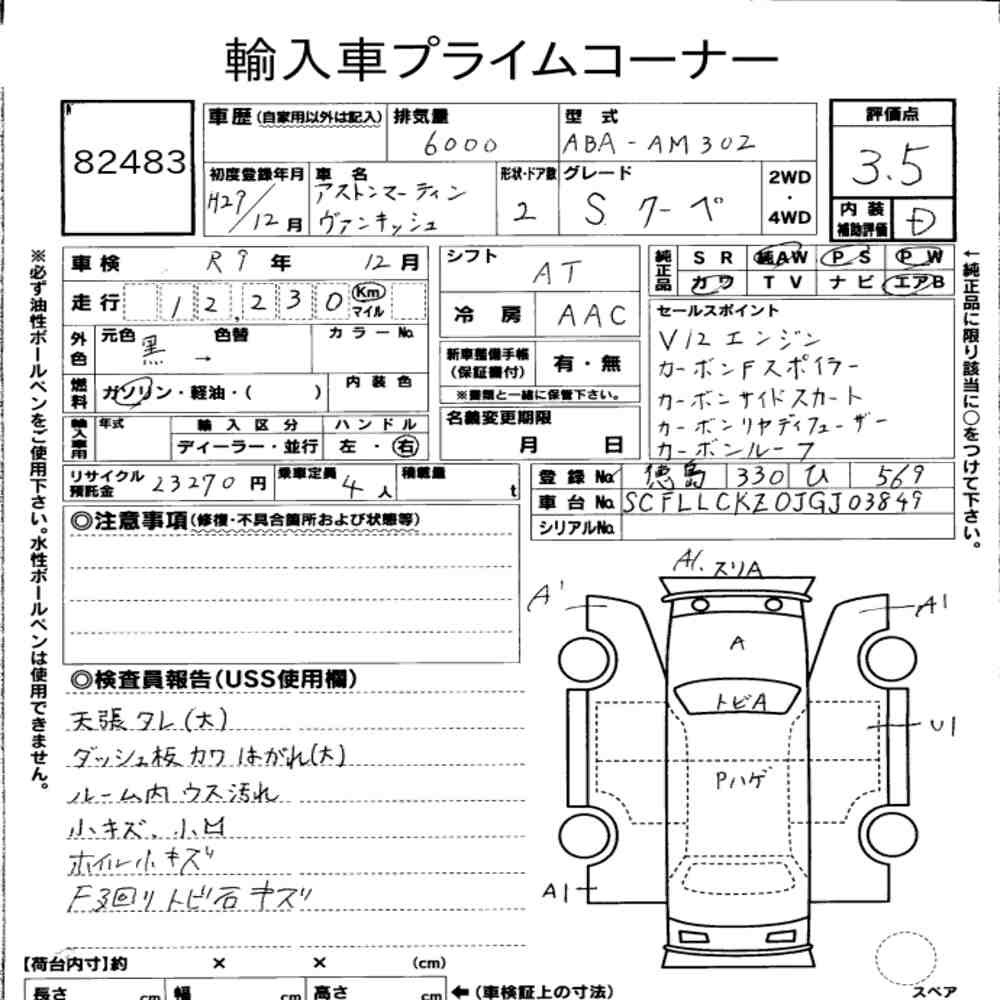 輸入車プライムコーナー
82483
車歴(自家用以外は記入) 排気量 6000 型式 ABA-AM302
評価点 3.5
初度登録年月 H29/12月 車名 アストンマーティン ヴァンキッシュ
形状・ドア数 2 グレード S クーペ 2WD・4WD
内装補助評価 D
※必ず油性ボールペンをご使用下さい。水性ボールペンは使用できません。
車検 R9年 12月
走行 12,230 Km マイル
外色 元色 黒 色替 → カラーNo.
燃料 ガソリン・軽油・( ) 内装色
輸入車用 年式 輸入区分 ディーラー・並行 ハンドル 左・右
シフト AT
冷房 AAC
新車整備手帳(保証書付) 有・無
※書類と一緒に保管下さい。
名義変更期限 月 日
純正品 SR 純AW PS PW
カワ TV ナビ エアB
セールスポイント
V12エンジン
カーボンFスポイラー
カーボンサイドスカート
カーボンリヤディフューザー
カーボンルーフ
←純正品に限り該当に○をつけて下さい。
リサイクル預託金 23270円 乗車定員 4人 積載量 t
登録No. 徳島 330 ひ 569
車台No. SCFLLCKZ0JGJ03849
シリアルNo.
◎注意事項(修復・不具合箇所および状態等)
◎検査員報告(USS使用欄)
天張タレ(大)
ダッシュ板カワはがれ(大)
ルーム内ウス汚れ
小キズ、小凹
ホイル小キズ
F廻りトビ石キズ
A1.スリA
A1
A1
A
トビA
U1
Pハゲ
A1
【荷台内寸】約 × × (cm)
長さ cm 幅 cm 高さ cm ←(車検証上の寸法)
スペア